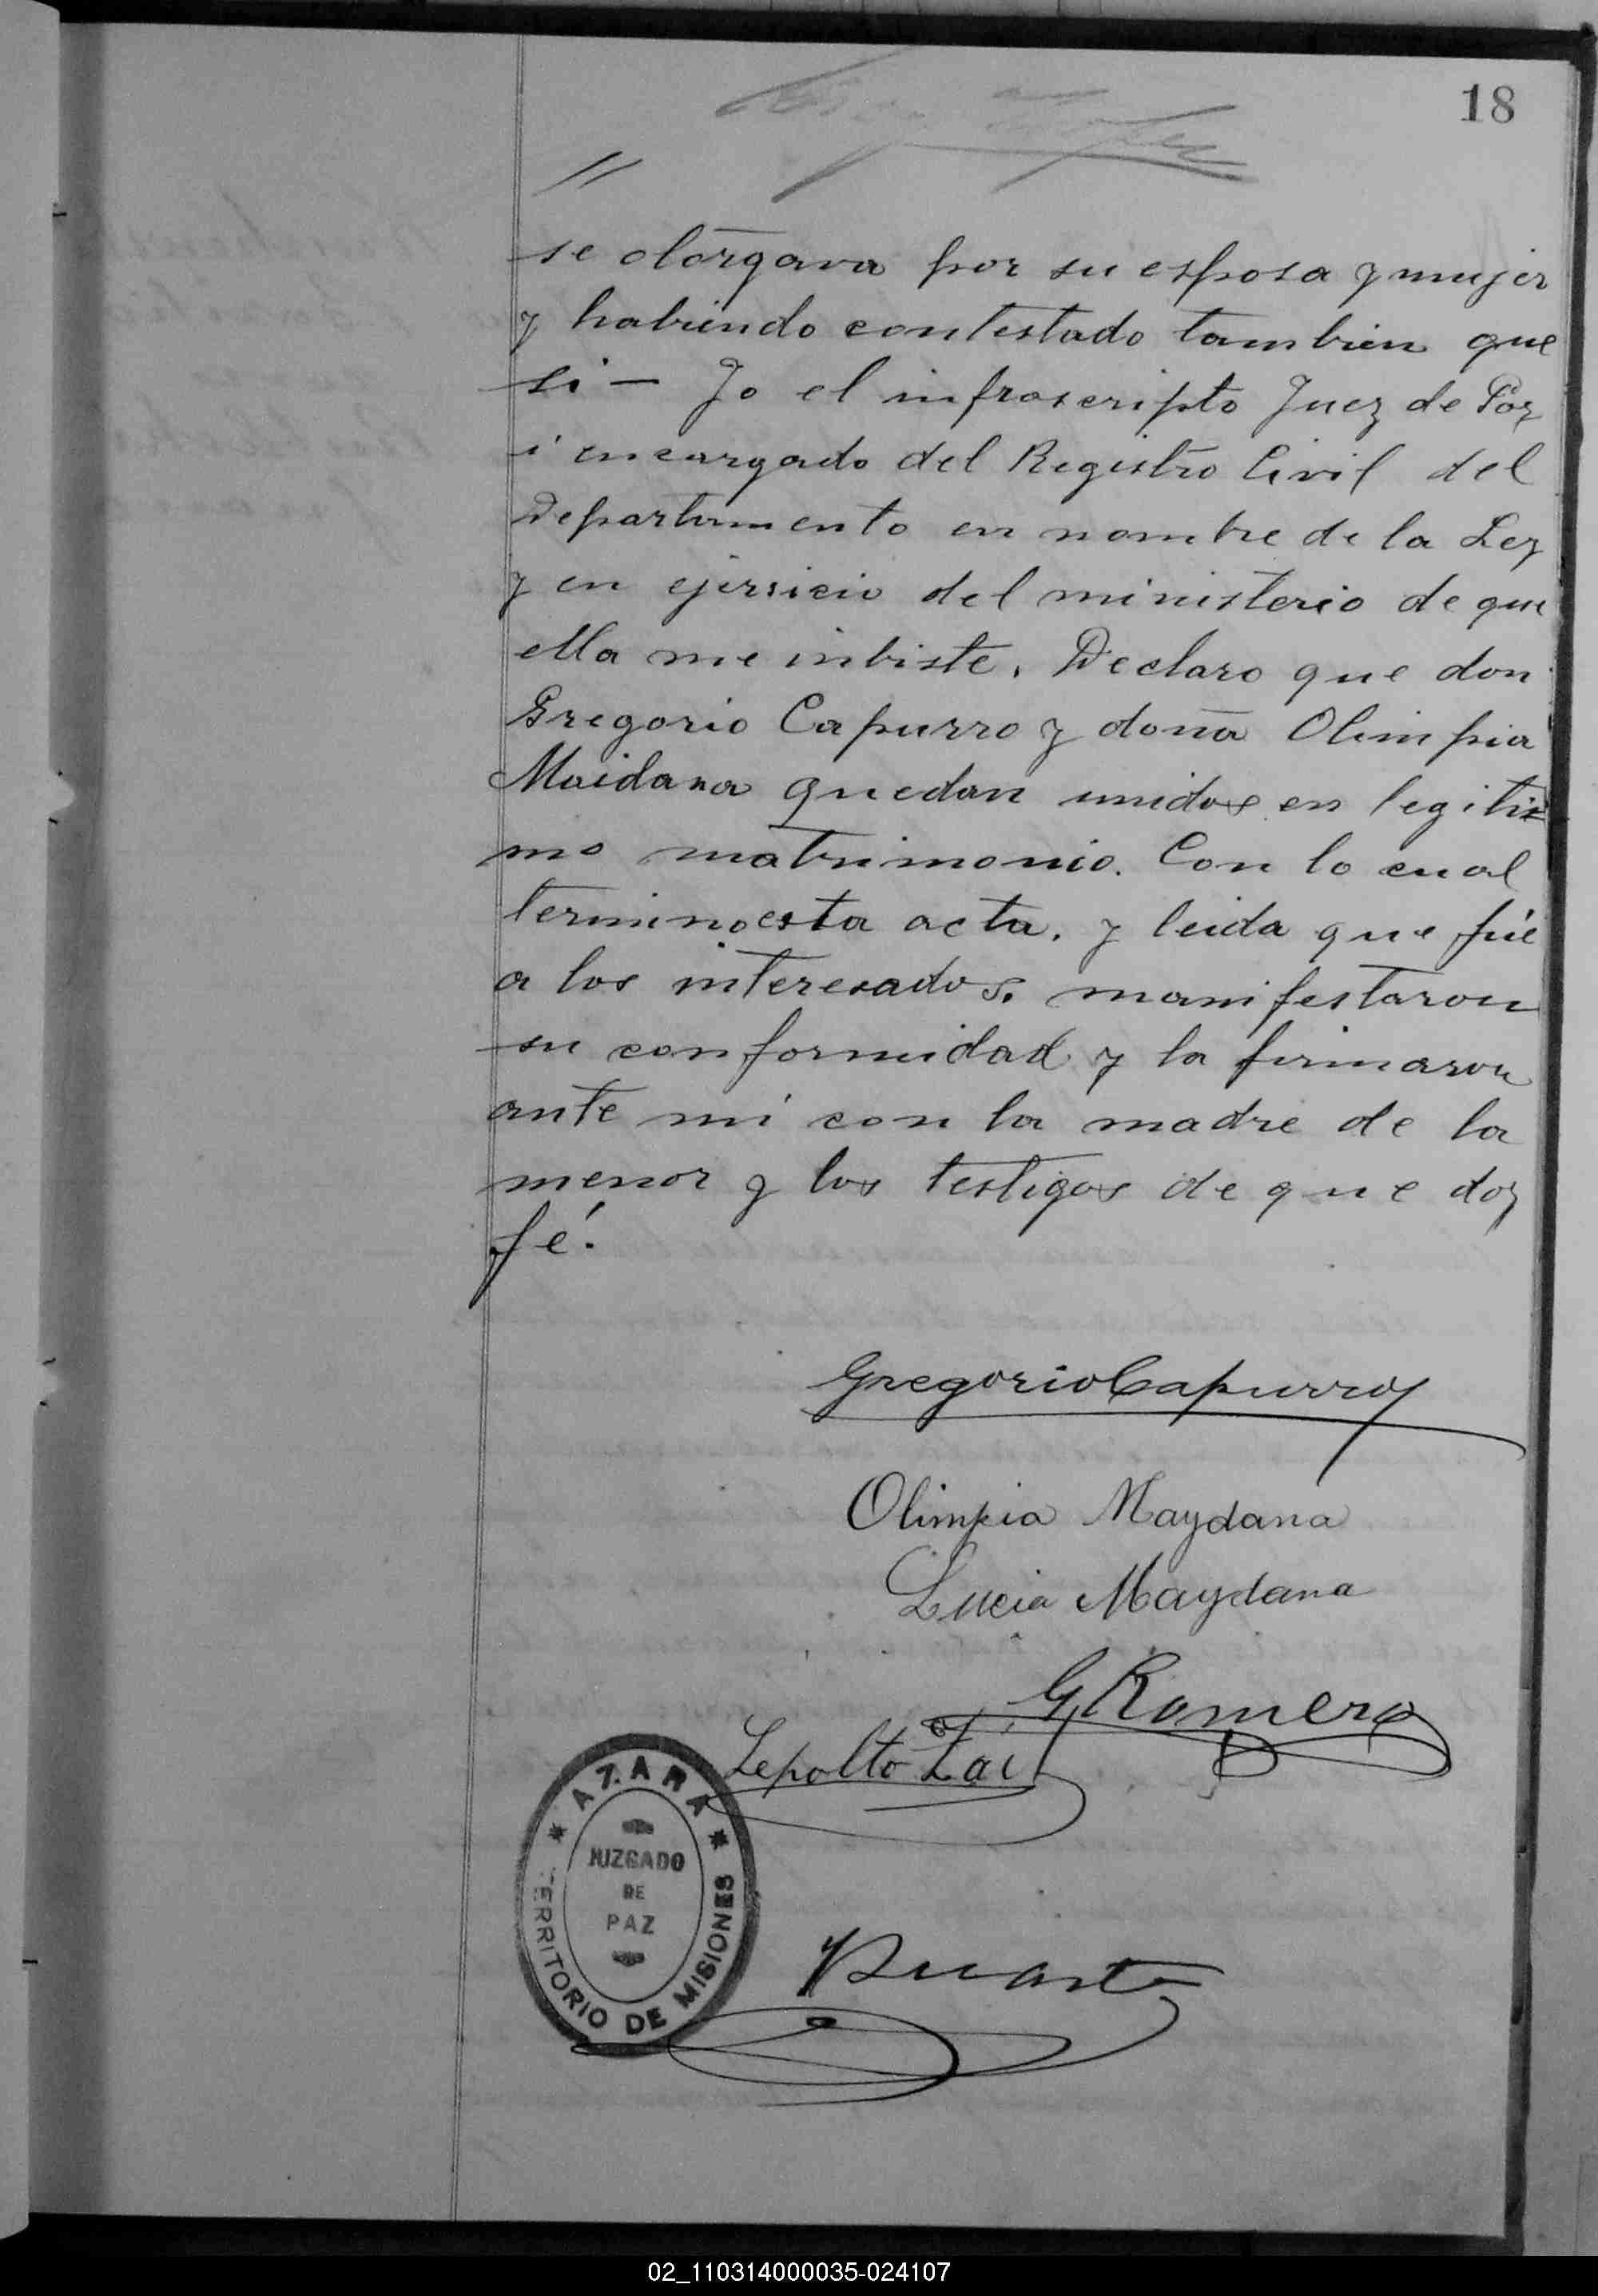 18
//
se otorgava por su esposa y mujer
y habiendo contestado tambien que
si — Yo el infrascripto Juez de Paz
i encargado del Registro Civil del
Departamento en nombre de la Ley
y en ejersicio del ministerio de que
ella me inbiste. Declaro que don
Gregorio Capurro y doña Olimpia
Maidana quedan unidos en legiti=
mo matrimonio. Con lo cual
termino esta acta. y leida que fué
a los interesados. manifestaron
su conformidad y la firmaron
ante mi con la madre de la
menor y los testigos de que doy
fé.
Gregorio Capurro
Olimpia Maydana
Lucia Maydana
G Romero
Lepolto
* AZARA *
JUZGADO
DE
PAZ
TERRITORIO DE MISIONES
Duarte
02_110314000035-024107